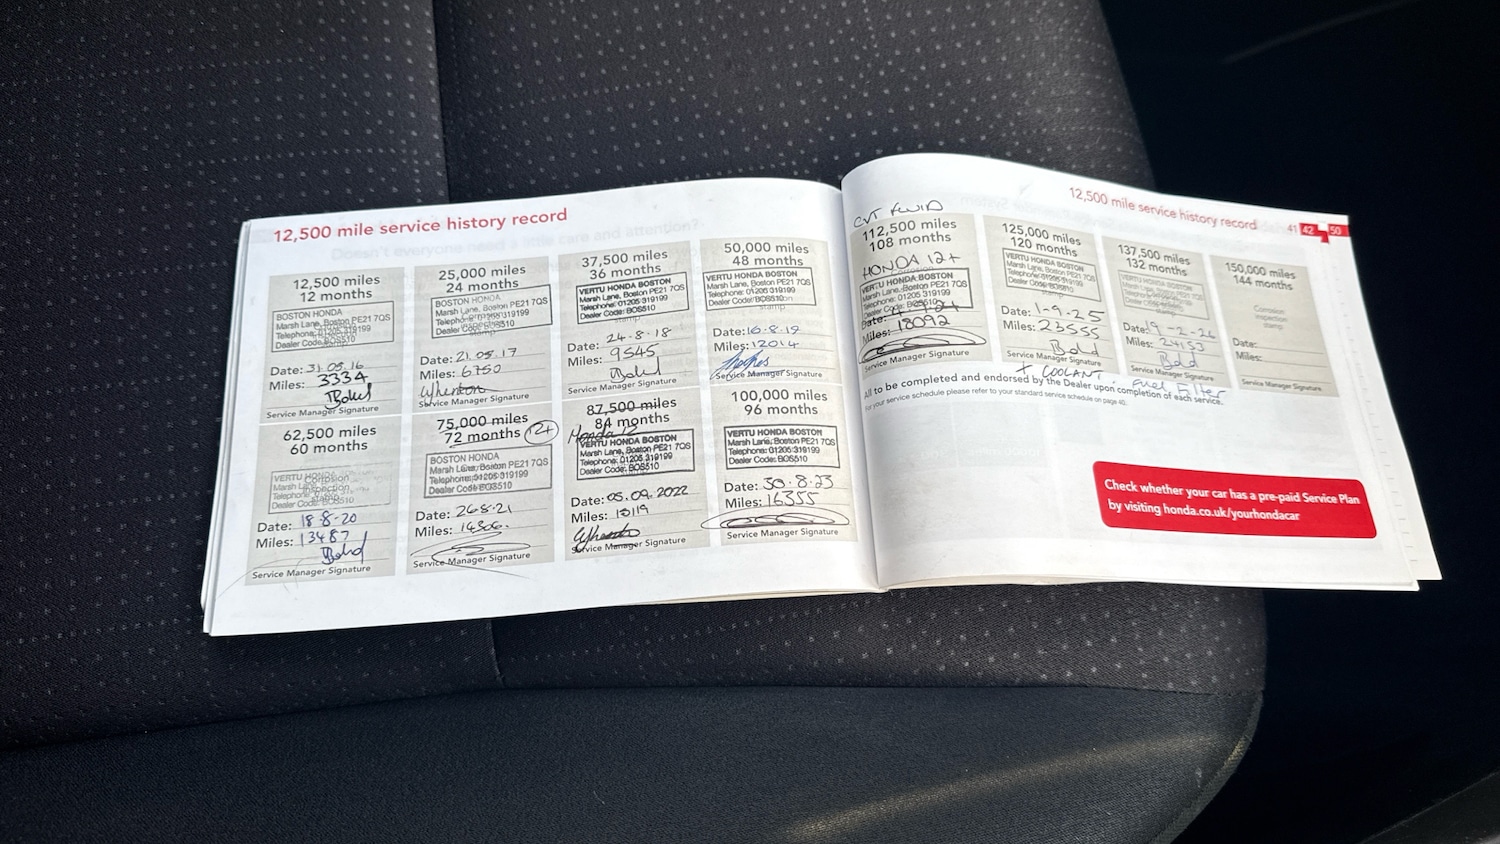 12,500 mile service history record
12,500 miles
12 months
BOSTON HONDA
Marsh Lane, Boston PE21 7QS
Telephone: 01205 319199
Dealer Code: BOS510
Date: 31.05.16
Miles: 3334
Service Manager Signature
25,000 miles
24 months
BOSTON HONDA
Marsh Lane, Boston PE21 7QS
Telephone: 01205 319199
Dealer Code: BOS510
Date: 21.05.17
Miles: 6750
Service Manager Signature
37,500 miles
36 months
VERTU HONDA BOSTON
Marsh Lane, Boston PE21 7QS
Telephone: 01205 319199
Dealer Code: BOS510
stamp
Date: 24.8.18
Miles: 9545
Service Manager Signature
50,000 miles
48 months
VERTU HONDA BOSTON
Marsh Lane, Boston PE21 7QS
Telephone: 01205 319199
Dealer Code: BOS510
stamp
Date: 16.8.19
Miles: 12014
Service Manager Signature
62,500 miles
60 months
VERTU HONDA BOSTON
Marsh Lane, Boston PE21 7QS
Telephone: 01205 319199
Dealer Code: BOS510
Date: 18-8-20
Miles: 13487
Service Manager Signature
75,000 miles
72 months 12+
BOSTON HONDA
Marsh Lane, Boston PE21 7QS
Telephone: 01205 319199
Dealer Code: BOS510
Date: 26.8.21
Miles: 14306.
Service Manager Signature
87,500 miles
84 months
Honda 12
VERTU HONDA BOSTON
Marsh Lane, Boston PE21 7QS
Telephone: 01205 319199
Dealer Code: BOS510
Date: 05.09.2022
Miles: 15119
Service Manager Signature
100,000 miles
96 months
VERTU HONDA BOSTON
Marsh Lane, Boston PE21 7QS
Telephone: 01205 319199
Dealer Code: BOS510
Date: 30.8.23
Miles: 16355
Service Manager Signature
12,500 mile service history record
41 42 50
CVT FLUID
112,500 miles
108 months
HONDA 12+
VERTU HONDA BOSTON
Marsh Lane, Boston PE21 7QS
Telephone: 01205 319199
Dealer Code: BOS510
Date:
Miles: 18092
Service Manager Signature
125,000 miles
120 months
VERTU HONDA BOSTON
Marsh Lane, Boston PE21 7QS
Telephone: 01205 319199
Dealer Code: BOS510
Date: 1-9-25
Miles: 23555
Service Manager Signature
+ COOLANT
137,500 miles
132 months
VERTU HONDA BOSTON
Marsh Lane, Boston PE21 7QS
Telephone: 01205 319199
Dealer Code: BOS510
Date: 19-2-26
Miles: 24153
Service Manager Signature
Fuel Filter
150,000 miles
144 months
Corrosion
inspection
stamp
Date:
Miles:
Service Manager Signature
All to be completed and endorsed by the Dealer upon completion of each service.
For your service schedule please refer to your standard service schedule on page 40.
Check whether your car has a pre-paid Service Plan
by visiting honda.co.uk/yourhondacar